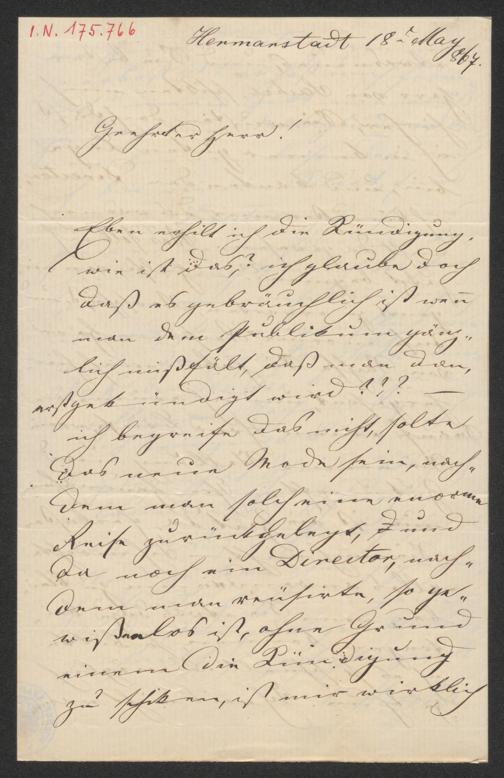 I.N. 175.766
Hermanstadt 18t May
867.
Geehrter Herr!
Eben erhilt ich die Kündigung,
wie ist das? ich glaube doch
daß es gebräuchlich ist wen̄
man dem Publikum gänz„
lich mißfält, daß man dan,
erst gekündigt wird??? —
ich begreife das nicht, solte
das neue Mode sein, nach„
dem man solch eine enorme
Reise zurückgelegt, und
da noch ein Director, nach„
dem man reüsirte, so ge„
wißenlos ist, ohne Grund
einem die Kündigung
zu schiken, ist mir wirklich